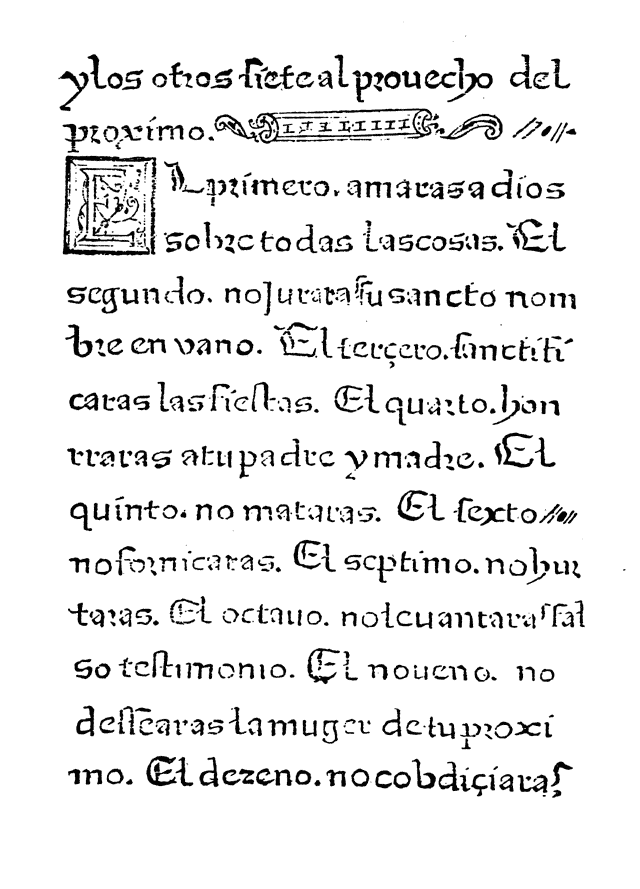 y los otros siete al prouecho del
proximo.
EL primero. amaras a dios
sobre todas las cosas. El
segundo. no Juraras su sancto nom
bre en vano. El terçero. sanctifi
caras las fiestas. El quarto. hon
rraras a tu padre y madre. El
quinto. no mataras. El sexto
no fornicaras. El septimo. no hur
taras. El octauo. no leuantaras fal
so testimonio. El noueno. no
dessearas la muger de tu proxi
mo. El dezeno. no cobdiçiaras